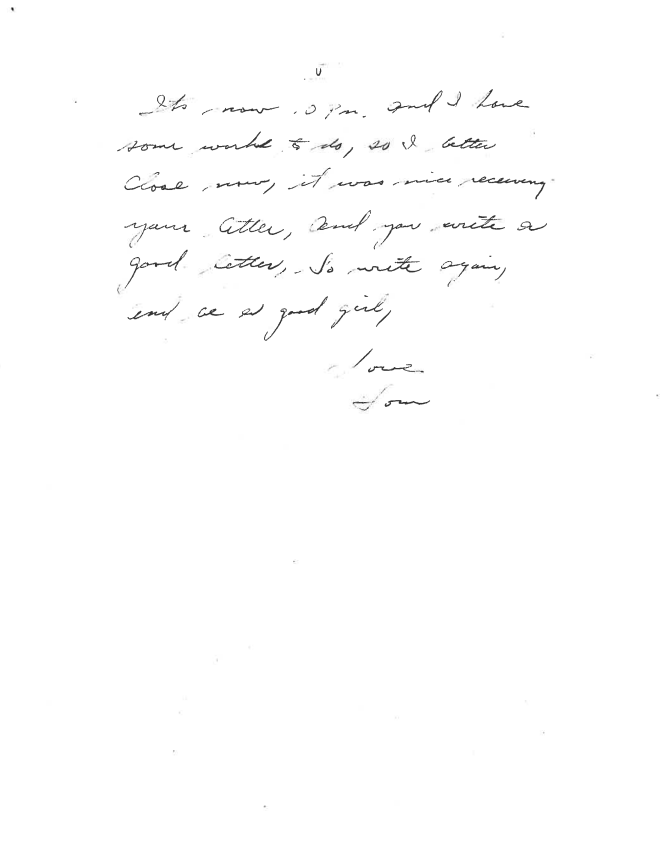 Its now 10 Pm. and I have
some work to do, so I better
Close now, it was nice receiving
your letter, and you write a
good letter, So write again,
and be a good girl,
Love
Tom